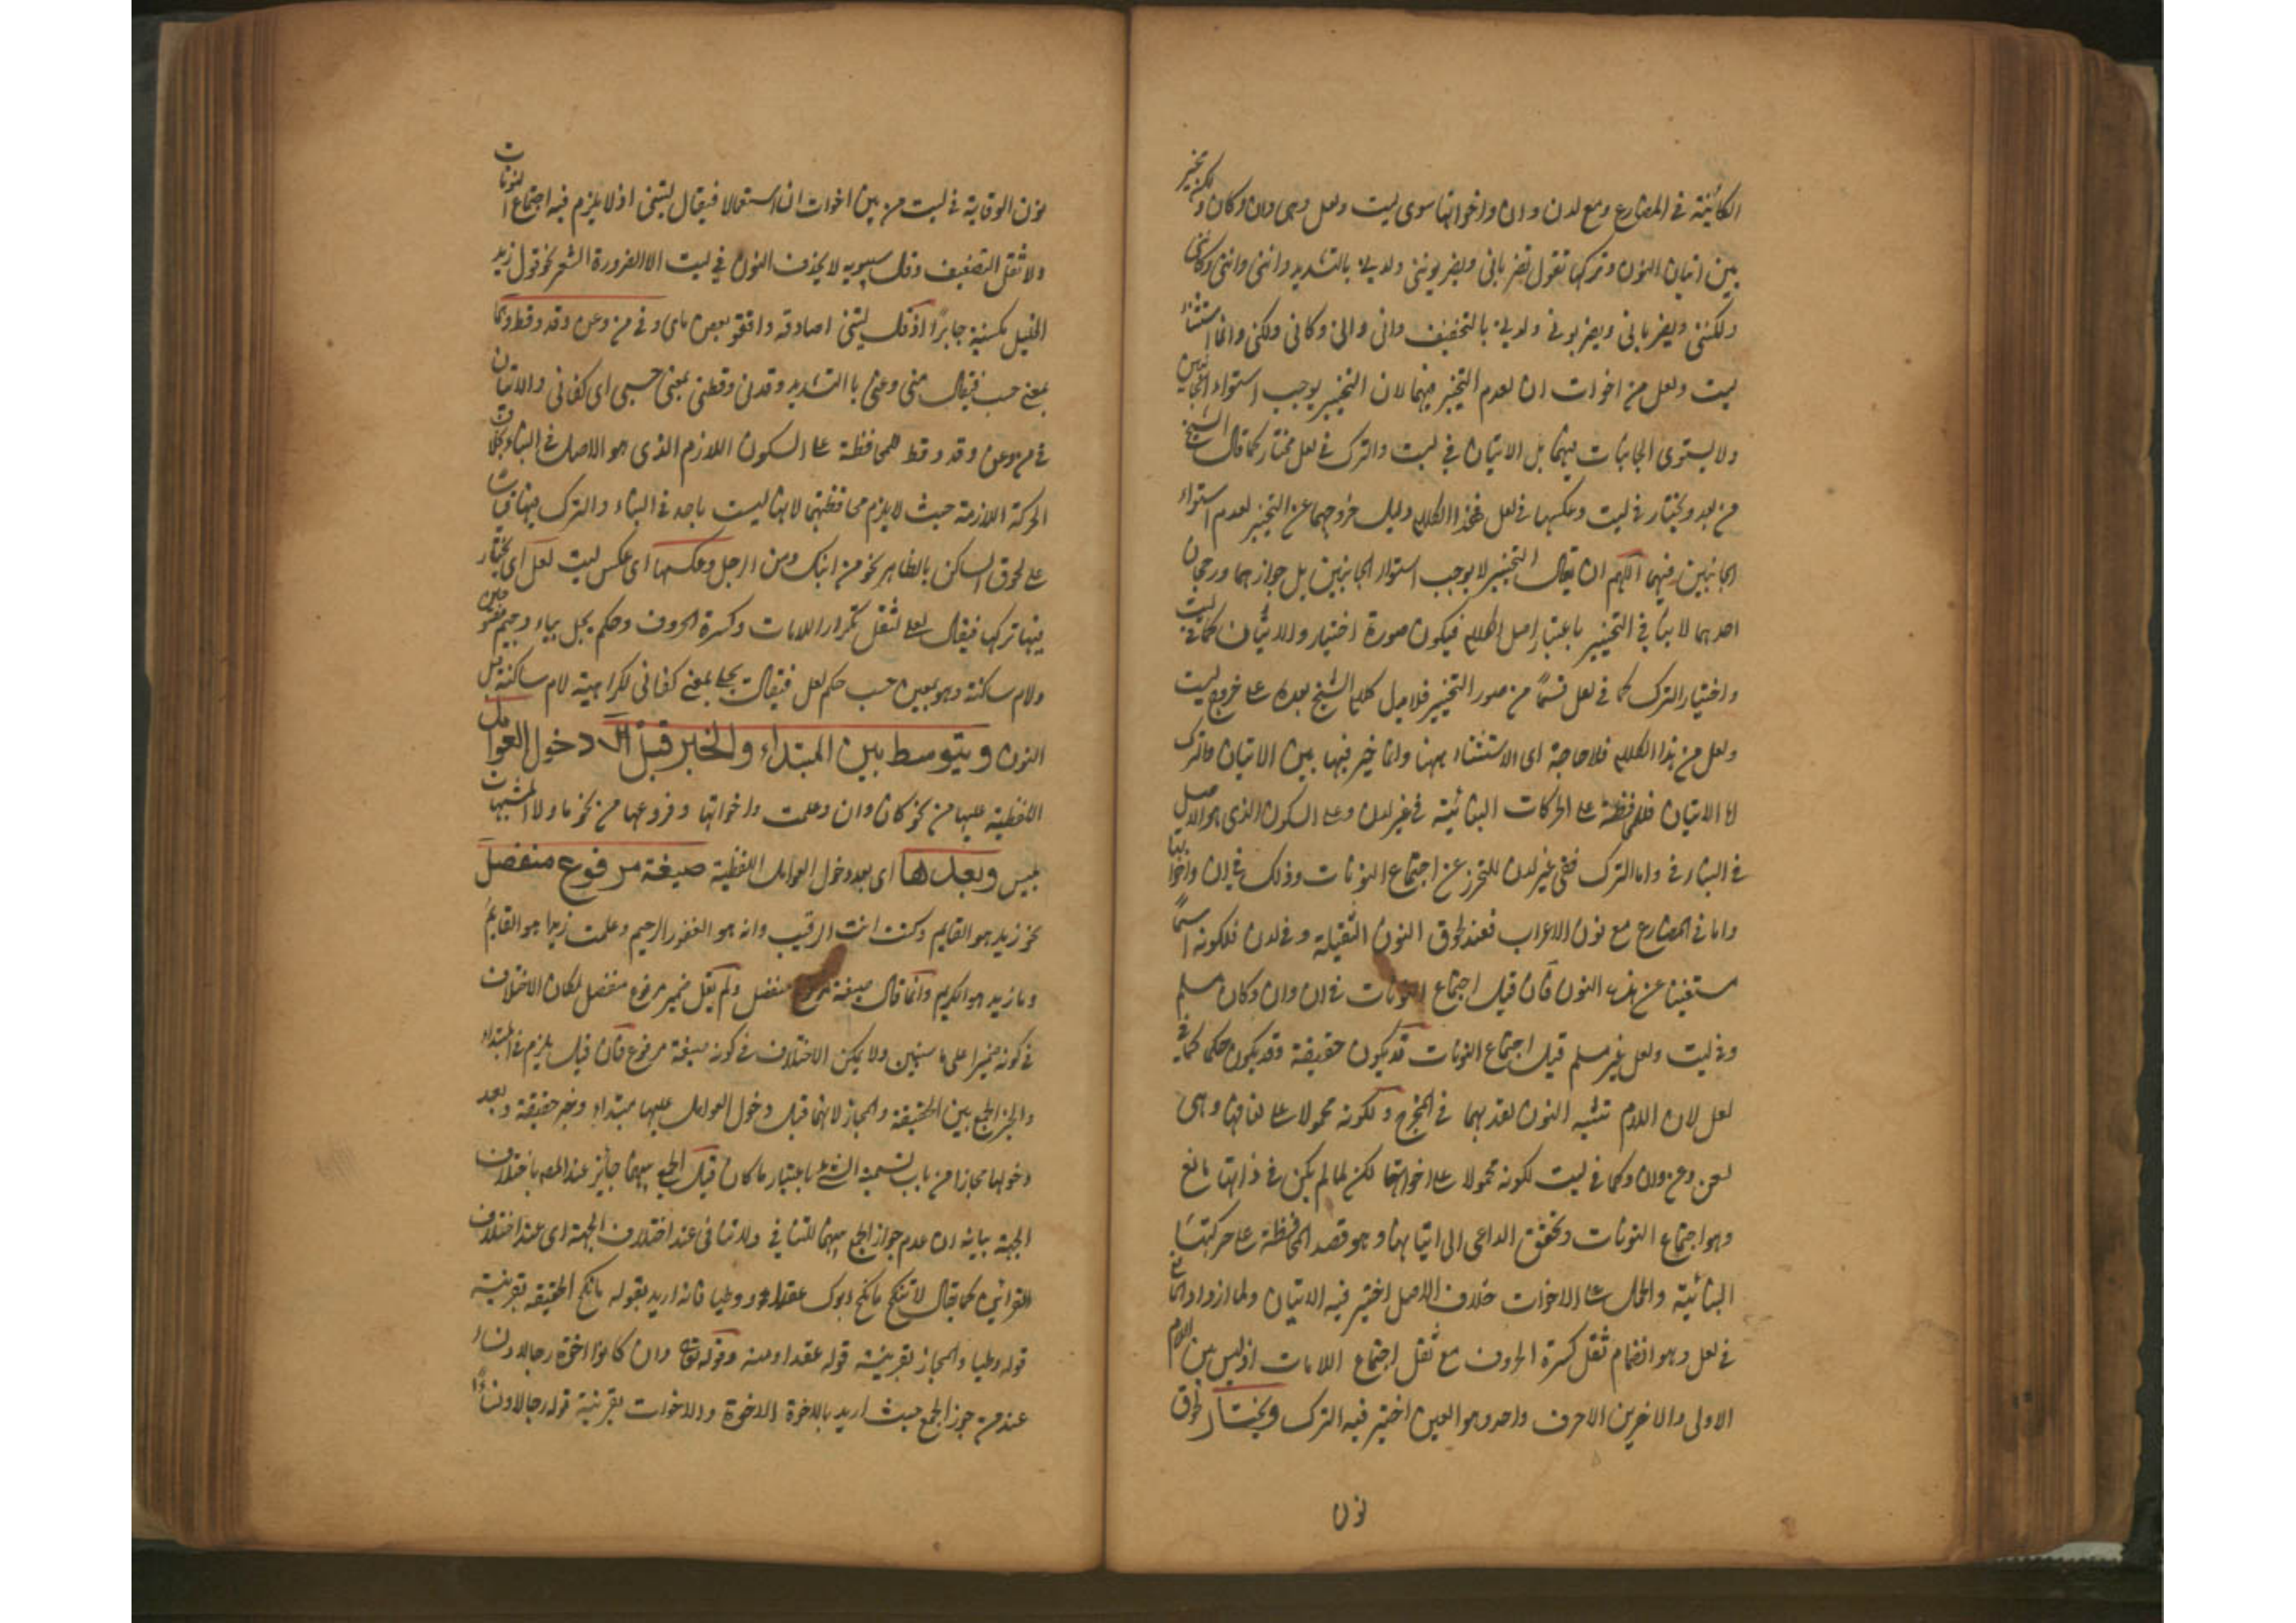 الكائنة في المضارع ومع لدن وان واخواتها سوى ليت ولعل وهى وان وكان ولكن مخير
بين اتيان النون وتركها تقول تضربانى ويضربوننى ولدنى بالتشديد واننى واننى وكاننى
ولكننى ويضربانى ويضربونى ولدنى بالتخفيف وانى وانى وكانى ولكنى وانما استثناء
ليت ولعل من اخوات ان لعدم التخيير فيهما لان التخيير يوجب استواء الجانبين
ولا يستوى الجانبان فيهما بل الاتيان في ليت والترك في لعل مختار كما قال الشيخ
من بعد ويختار في ليت وعكسها في لعل فهذا الكلام دليل خروجهما عن التخيير لعدم استواء
الجانبين فيهما اللهم ان يقال التخيير لا يوجب استواء الجانبين بل جوازهما ورجحان
احدهما لا ينافى التخيير باعتبار اصل الكلام فيكون صورة اختيار والاتيان كما في ليت
واختيار الترك كما في لعل قسما من صور التخيير فلا يدل كلام الشيخ بعده على خروج ليت
ولعل من هذا الكلام فلا حاجة اى الاستثناء ههنا وانما خير فيها بين الاتيان والترك
اما الاتيان فللمحافظة على الحركات البنائية في غير لدن وعلى السكون الذى هو الاصل
في البناء في واما الترك ففى غير لدن للتحرز عن اجتماع النونات وذلك في ان واخواتها
واما في المضارع مع نون الاعراب فعند لحوق النون الثقيلة وفي لدن فلكونه اسما
مستغنيا عن هذه النون فان قيل اجتماع النونات في ان وان وكان مسلم
وفي ليت ولعل غير مسلم قيل اجتماع النونات قد يكون حقيقة وقد يكون حكما كما في
لعل لان اللام تشبه النون لقربهما في المخرج ولكونه محمولا على لغاتها وهى
لعن وعن ولان وكما في ليت لكونه محمولا على اخواتها لكن لما لم يكن في ذاتها مانع
وهو اجتماع النونات وتحقق الداعى الى اتيانها وهو قصد المحافظة على حركتها
البنائية والحمل على الاخوات خلاف الاصل اختير فيه الاتيان ولما ازداد المانع
في لعل وهو انضمام ثقل كثرة الحروف مع ثقل اجتماع اللامات اذ ليس بين اللام
الاولى والاخرين الا حرف واحد وهو العين اختير فيه الترك ويختار لحوق
نون
نون الوقاية في ليت من بين اخوات ان استعمالا فيقال ليتنى اذ لا يلزم فيه اجتماع النونات
ولا ثقل التضعيف وقال سيبويه لا يحذف النون في ليت الا لضرورة الشعر نحو قول زيد
الخيل كمنية جابر اذ قال ليتى اصادفه وافقد بعض مالى وفي من وعن وقد وقط وهما
بمعنى حسب فيقال منى وعنى بالتشديد وقدنى وقطنى بمعنى حسبى اى كفانى والاتيان
في من وعن وقد وقط للمحافظة على السكون اللازم الذى هو الاصل في البناء بخلاف
الحركة اللازمة حيث لا يلزم محافظتها لانها ليست باجد في البناء والترك فيها
على لحوق الساكن بالظاهر نحو من ابنك ومن الرجل وعكسها اى عكس ليت لعل اى يختار
فيها تركها فيقال لعلى لثقل تكرار اللامات وكثرة الحروف وحكم بجل بباء وجيم مفتوحتين
ولام ساكنة وهو بمعنى حسب حكم لعل فيقال بجلى بمعنى كفانى لكراهية لام ساكنة قبل
النون ويتوسط بين المبتداء والخبر قبل اى دخول العوامل
اللفظية عليها من نحو كان وان وعلمت واخواتها وفروعها من نحو ما ولا المشبهات
بليس وبعدها اى بعد دخول العوامل اللفظية صيغة مرفوع منفصل
نحو زيد هو القايم وكنت انت الرقيب وانه هو الغفور الرحيم وعلمت زيدا هو القايم
وما زيد هو الكريم وانما قال صيغة مرفوع منفصل ولم يقل ضمير مرفوع منفصل لمكان الاختلاف
في كونه ضميرا على ما سيبين ولا يمكن الاختلاف في كونه صيغة مرفوع فان قيل يلزم في المبتداء
والخبر الجمع بين الحقيقة والمجاز لانهما قبل دخول العوامل عليها مبتداء وخبر حقيقة وبعد
دخولها مجازا من باب تسمية الشئ باعتبار ما كان قيل الجمع بينهما جائز عند المص باختلاف
الجهة بيانه ان عدم جواز الجمع بينهما للتنافى ولا تنافى عند اختلاف الجهة اى عند اختلاف
القرائن كما يقال لا تنكح ما نكح ابوك عقدا ووطيا فانه اريد بقوله ما نكح الحقيقة بقرينة
قوله وطيا والمجاز بقرينة قوله عقدا ومنه قوله تعالى وان كانوا اخوة رجالا ونساء
عند من جوز الجمع حيث اريد بالاخوة الاخوة والاخوات بقرينة قوله رجالا ونساء